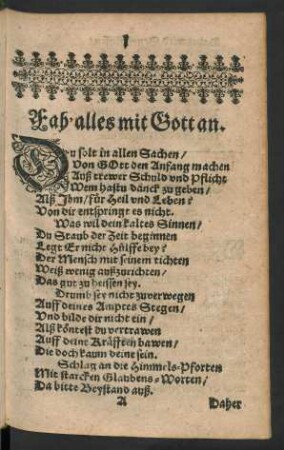 1
Fah alles mit Gott an.
DU solt in allen Sachen /
Von GOtt den Anfang machen
Auß trewer Schuld vnd Pflicht
Wem hastu danck zu geben /
Alß Ihm / für Heil vnd Leben?
Von dir entspringt es nicht.
Was wil dein kaltes Sinnen /
Du Staub der Zeit beginnen
Legt Er nicht Hülffe bey?
Der Mensch mit seinem tichten
Weiß wenig außzurichten /
Das gut zu heissen sey.
Drumb sey nicht zu verwegen
Auff deines Amptes Stegen /
Vnd bilde dir nicht ein /
Alß köntest du vertrawen
Auff deine Kräfften bawen /
Die doch kaum deine sein.
Schlag an die Himmels-Pforten
Mit starcken Glaubens-Worten /
Da bitte Beystand auß.
A Daher